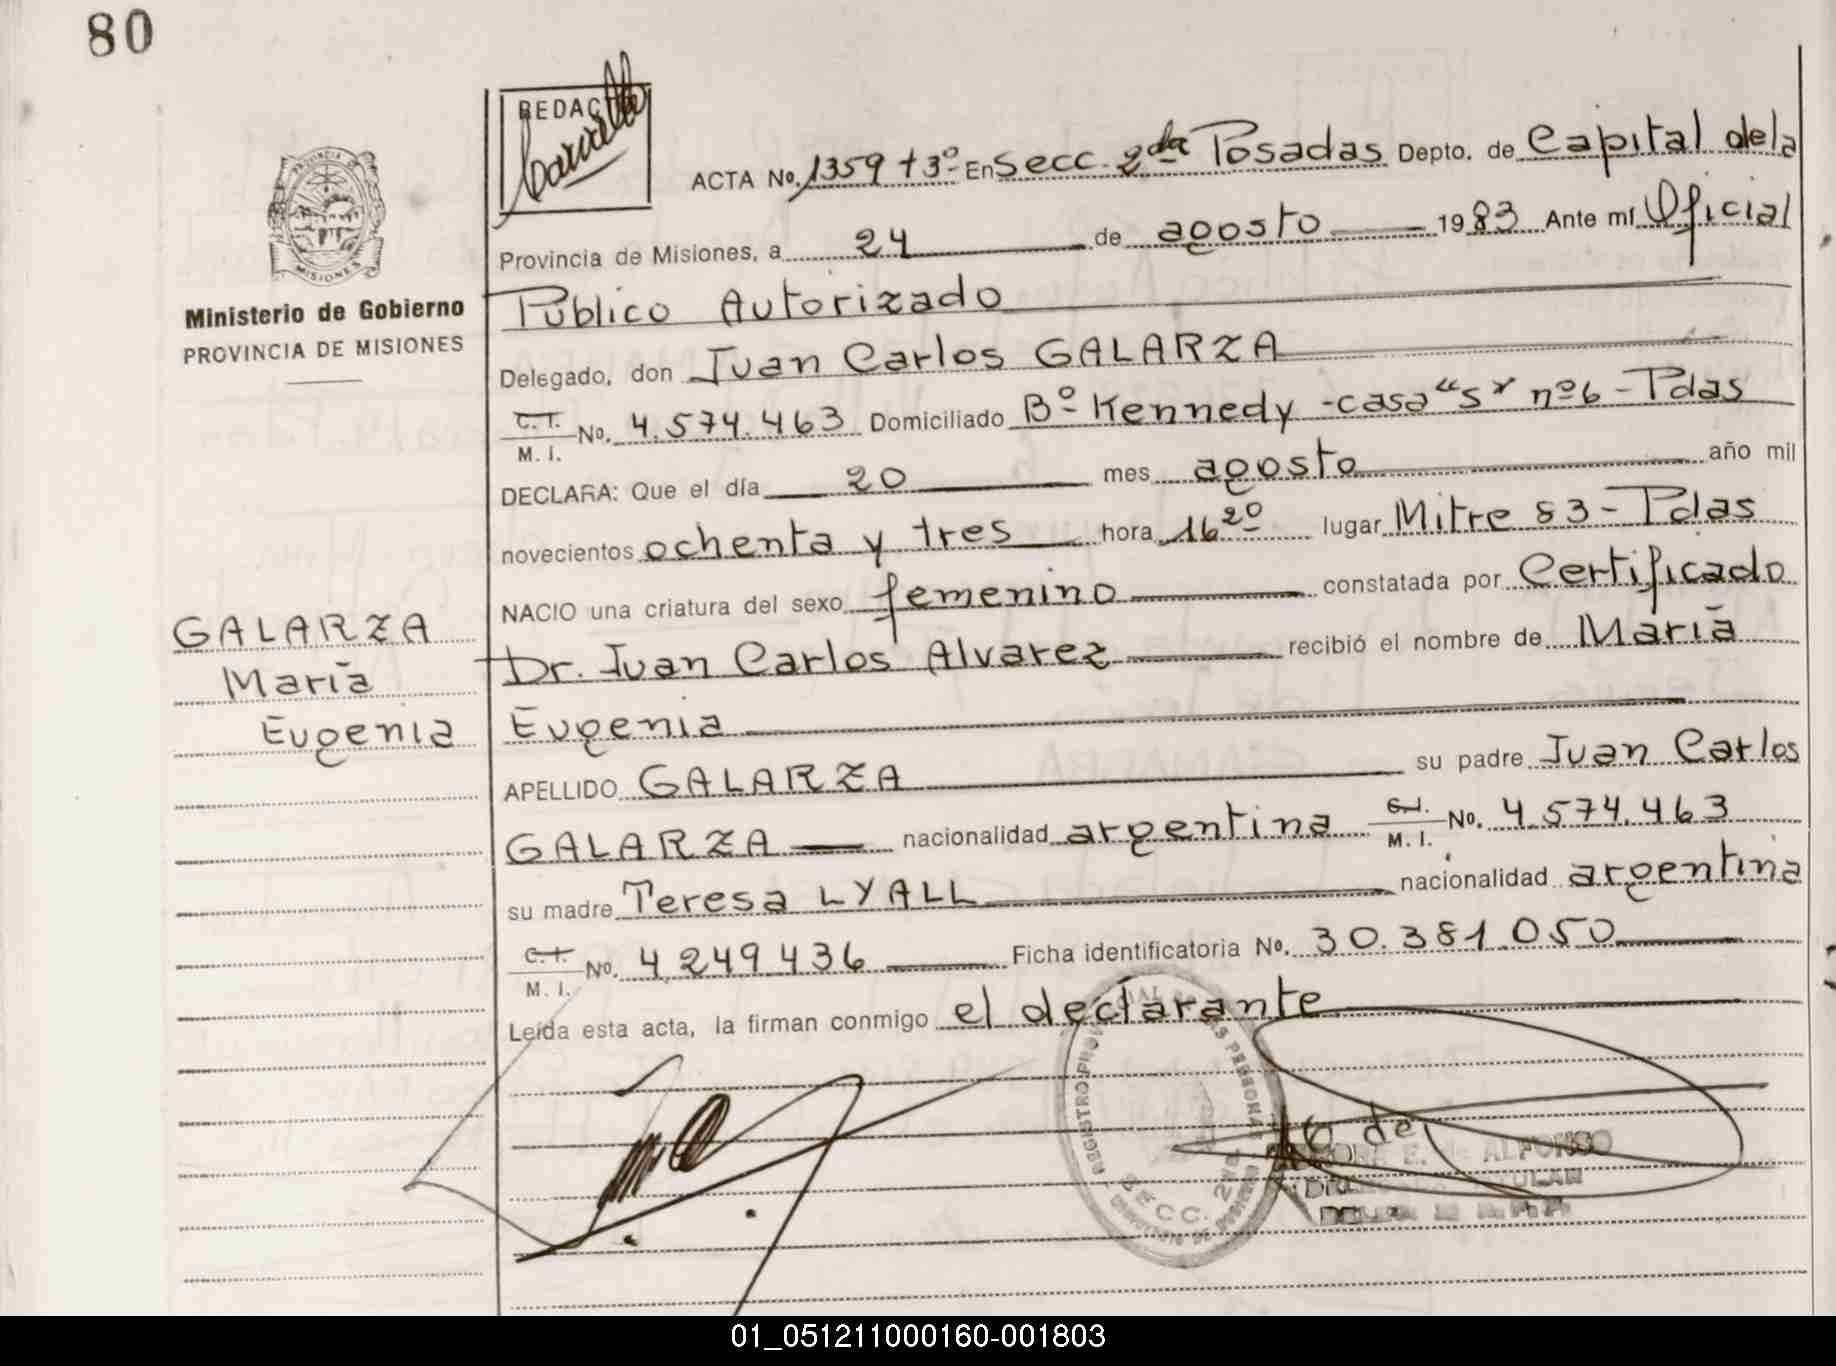 80
REDAC
ACTA No. 1359 t 3º En Secc. 2da Posadas Depto. de Capital de la
Provincia de Misiones, a 24 de agosto 1983 Ante mí Oficial
Público Autorizado
PROVINCIA DE
MISIONES
Ministerio de Gobierno
PROVINCIA DE MISIONES
Delegado, don Juan Carlos GALARZA
C.I. M.I. No. 4.574.463 Domiciliado Bº Kennedy - casa "S" nº 6 - Pdas
DECLARA: Que el día 20 mes agosto año mil
novecientos ochenta y tres hora 16 20 lugar Mitre 83 - Pdas
NACIO una criatura del sexo femenino constatada por Certificado
Dr. Juan Carlos Alvarez recibió el nombre de María
Eugenia
GALARZA
María
Eugenia
APELLIDO GALARZA su padre Juan Carlos
GALARZA nacionalidad argentina C.I. M.I. No. 4.574.463
su madre Teresa LYALL nacionalidad argentina
C.I. M.I. No. 4.249.436 Ficha identificatoria No. 30.381.050
Leída esta acta, la firman conmigo el declarante
REGISTRO PROVINCIAL DE LAS PERSONAS
SECC. 2da
E. de ALFONSO
TITULAR
01_051211000160-001803